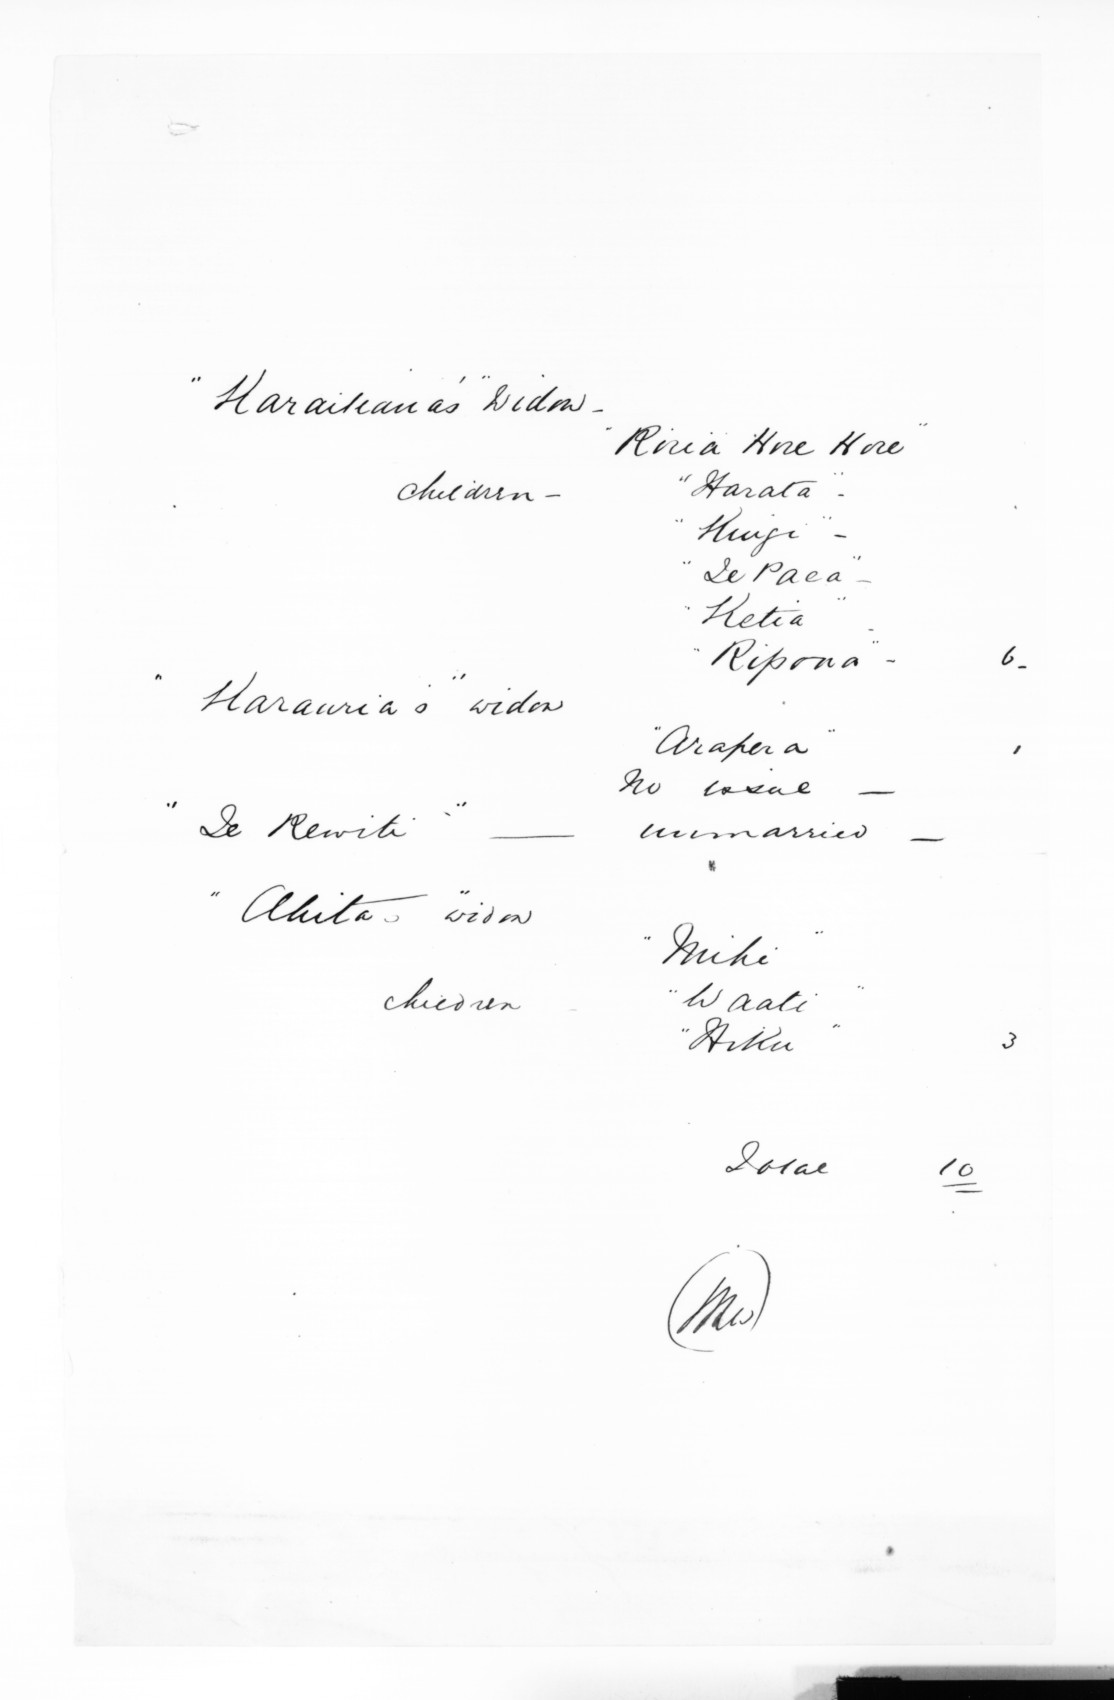 "Karaikana's" Widow -
"Roria Hore Hore"
children - "Harata" -
"Kingi" -
"Te Paea" -
"Ketia" -
"Ripona" - 6 -
"Karauria's" widow
"Arapera" 1
No issue —
"Te Rewiti" — unmarried —
"Ahitas" widow
"Mihi"
children "Waati"
"Hiku" 3
Total 10